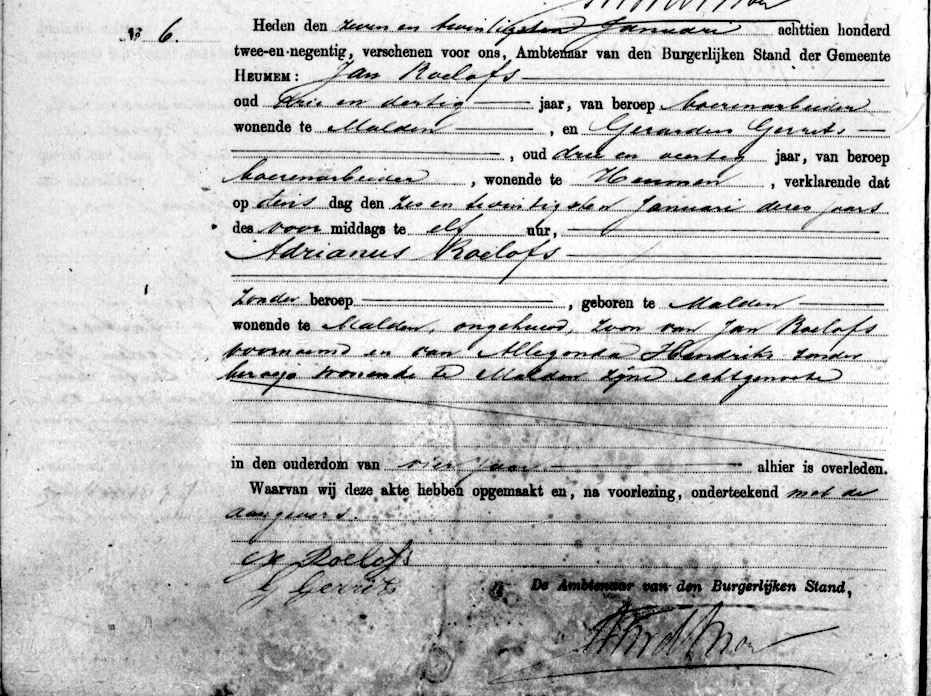 № 6.
Heden den zeven en twintigsten Januari achttien honderd
twee-en-negentig, verschenen voor ons, Ambtenaar van den Burgerlijken Stand der Gemeente
HEUMEM: Jan Roelofs
oud drie en dertig jaar, van beroep boerenarbeider
wonende te Malden, en Gerardus Gerrits
, oud drie en veertig jaar, van beroep
boerenarbeider, wonende te Heumen, verklarende dat
op dins dag den zes en twintigsten Januari dezes jaars
des voor middags te elf uur,
Adrianus Roelofs
zonder beroep, geboren te Malden
wonende te Malden, ongehuwd, zoon van Jan Roelofs
voornoemd en van Allegonda Hendriks zonder
beroep wonende te Malden zijne echtgenoote
in den ouderdom van vier jaar alhier is overleden.
Waarvan wij deze akte hebben opgemaakt en, na voorlezing, onderteekend met de
aangevers.
Roelofs
G Gerrits
De Ambtenaar van den Burgerlijken Stand,